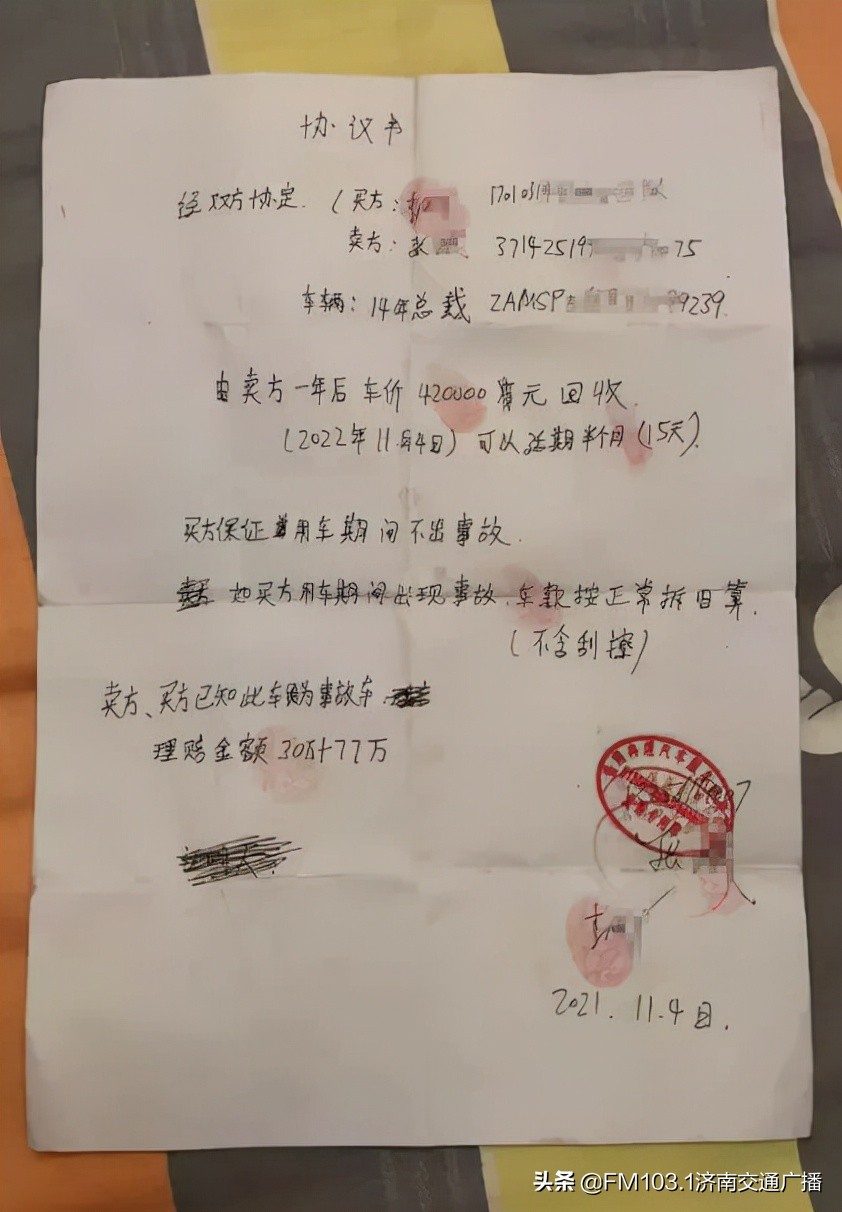 协议书
经双方协定. (买方: 37010319
卖方: 37142519 75
车辆: 14年总裁 ZAMSP 9239.
由卖方一年后车价420000 元回收.
(2022年11月4日) 可以延期半个月 (15天).
买方保证 用车期间不出事故.
如买方用车期间出现事故, 车款按正常拆旧算.
(不含刮擦)
卖方、买方已知此车 为事故车.
理赔金额 30 77万
汽车
2021. 11.4日.
头条 @FM103.1济南交通广播